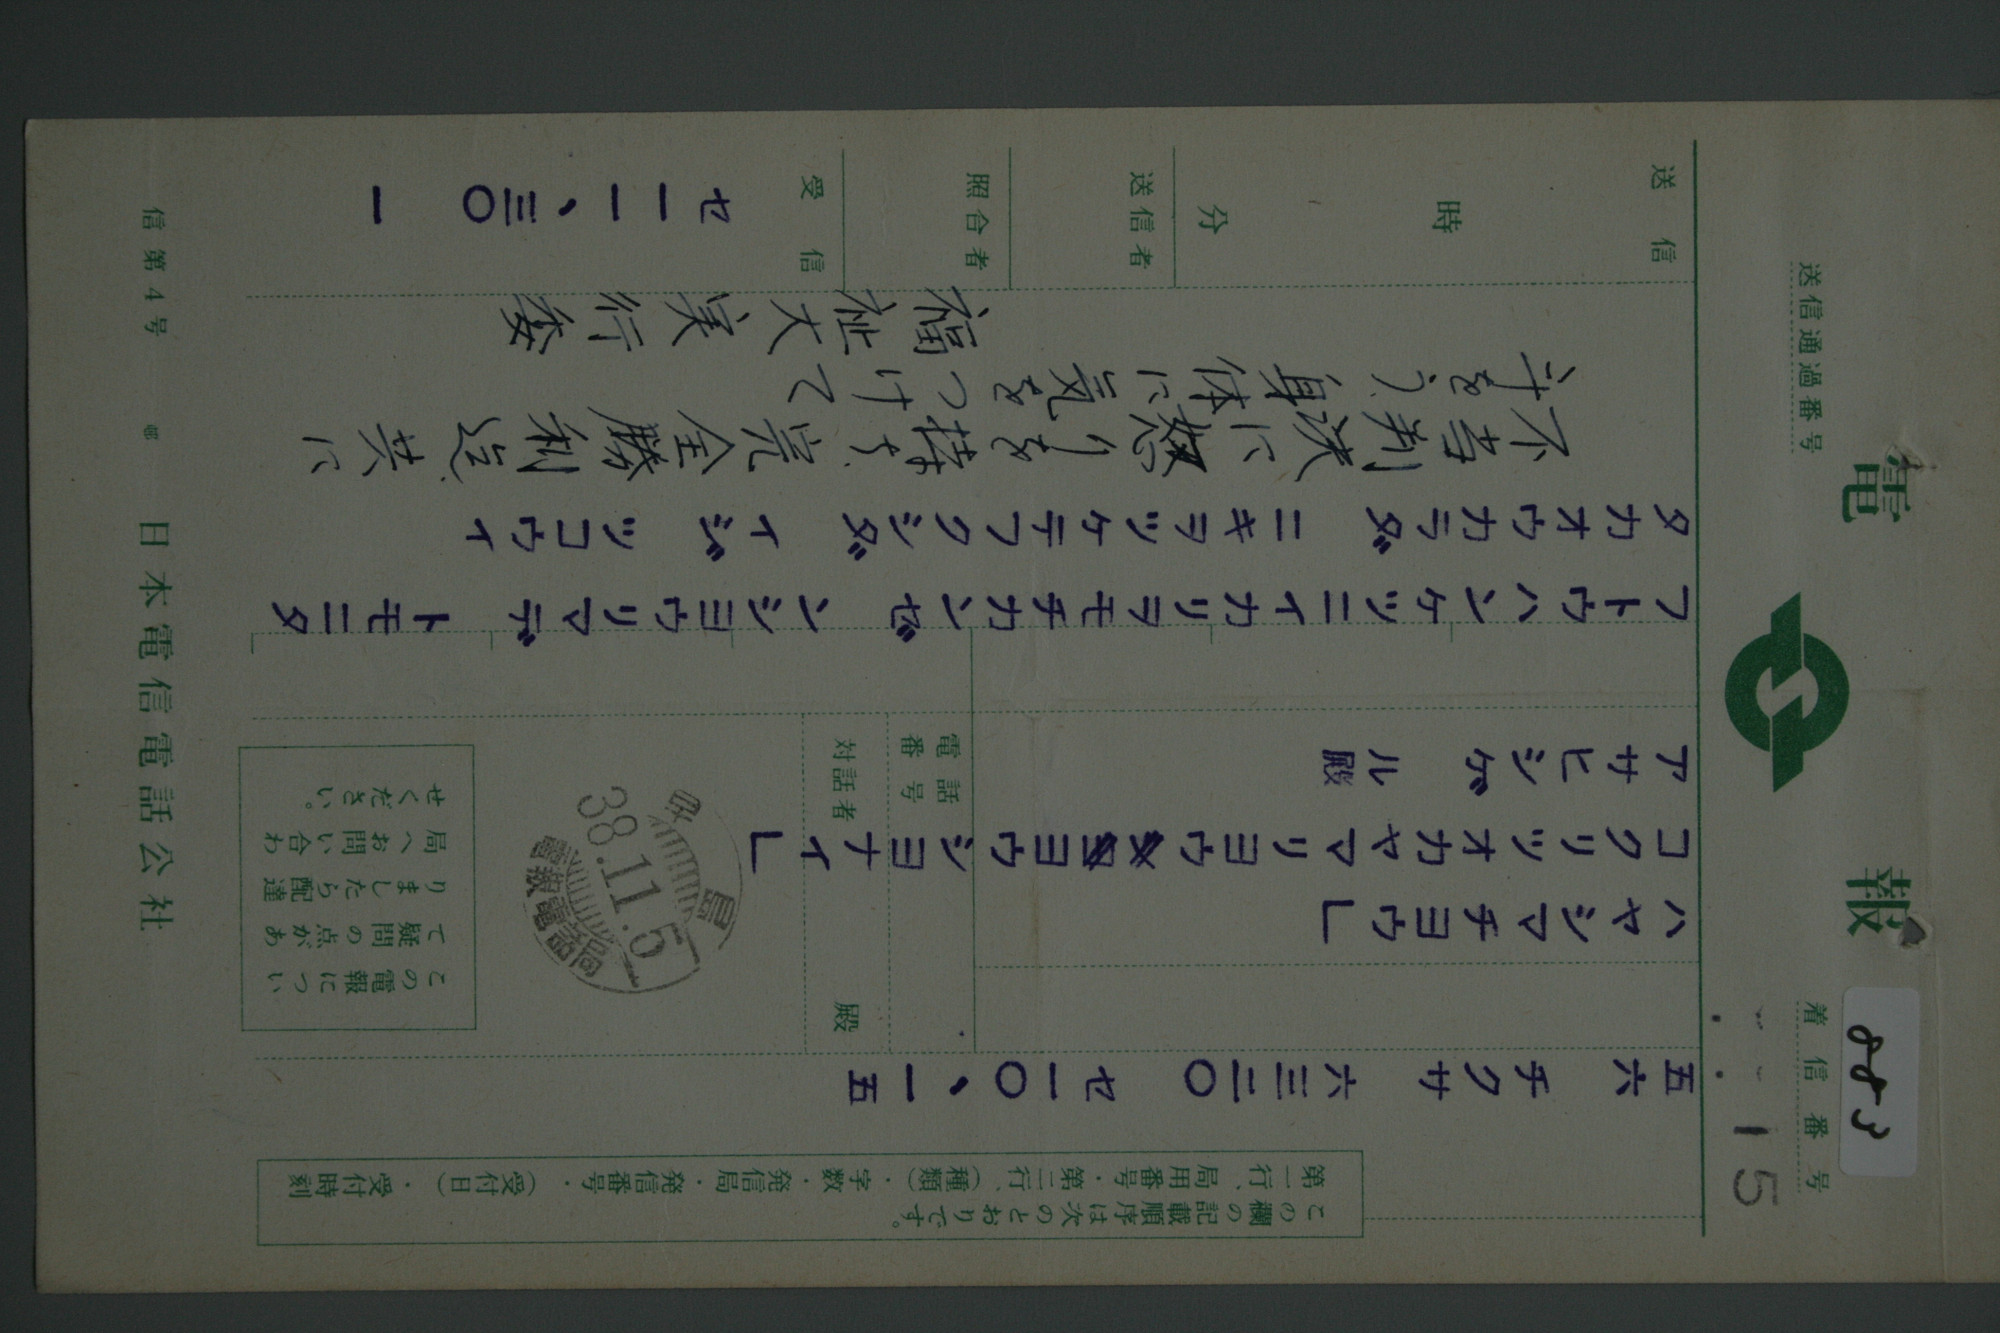 電報
着信番号
送信通過番号
883
15
この欄の記載順序は次のとおりです。
第一行、局用番号・第二行、(種類)・字数・発信局・発信番号・(受付日)・受付時刻
五六 チクサ 六三二〇 セ一〇、一五
ハヤシマチヨウ」
コクリツオカヤマリヨウヨウシヨナイ」
アサヒシゲル殿
電話番号
対話者
殿
38.11.5
岡山
早島局
この電報につい
て疑問の点があ
りましたら配達
局へお問い合わ
せください。
フトウハンケツニイカリヲモチカンゼンシヨウリマデトモニタ
タカオウカラダニキヲツケテフクシダイジツコウイ
不当判決に怒りを持ち、完全勝利迄共に
斗をう、身体に気をつけて
福祉大実行委
送信
時
分
送信者
照合者
受信
セ一一、三〇
一
信第4号
日本電信電話公社